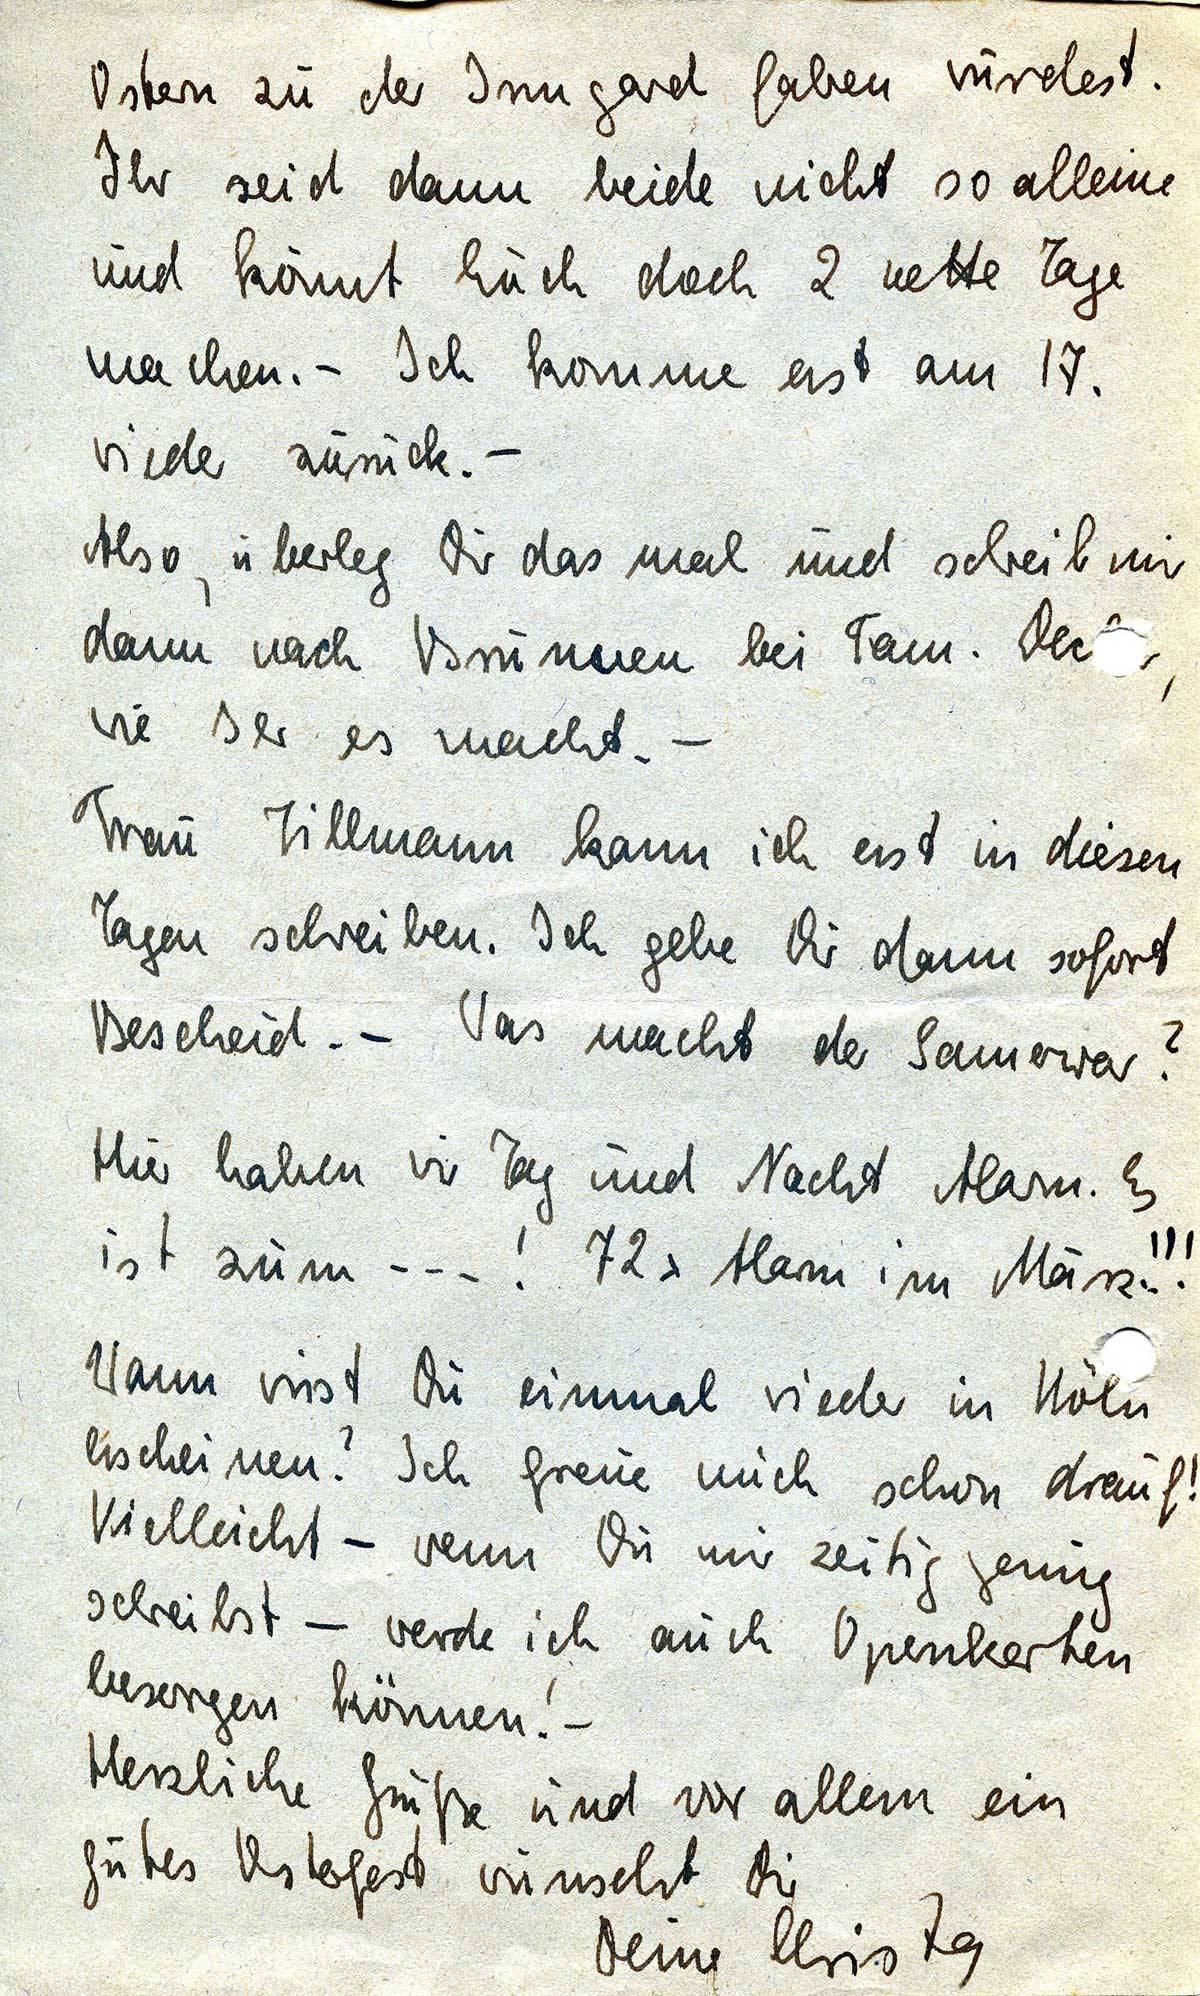 Ostern zu der Irmgard fahren würdest.
Ihr seid dann beide nicht so alleine
und könnt Euch doch 2 nette Tage
machen. – Ich komme erst am 17.
wieder zurück. –
Also, überleg Dir das mal und schreib mir
dann nach Brünnen bei Fam.
wie Ihr es macht. –
Frau Tillmann kann ich erst in diesen
Tagen schreiben. Ich gebe Dir dann sofort
Bescheid. – Was macht der Samowar?
Hier haben wir Tag und Nacht Alarm. Es
ist zum - - - ! 72x Alarm im März!!!
Wann wirst Du einmal wieder in Köln
erscheinen? Ich freue mich schon drauf!
Vielleicht – wenn Du mir zeitig genug
schreibst – werde ich auch Openkarten
besorgen können! –
Herzliche Grüße und vor allem ein
gutes Osterfest wünscht Dir
Deine Christa